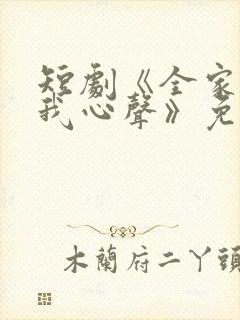 短劇《全家
我心聲》免
木蘭府二丫頭